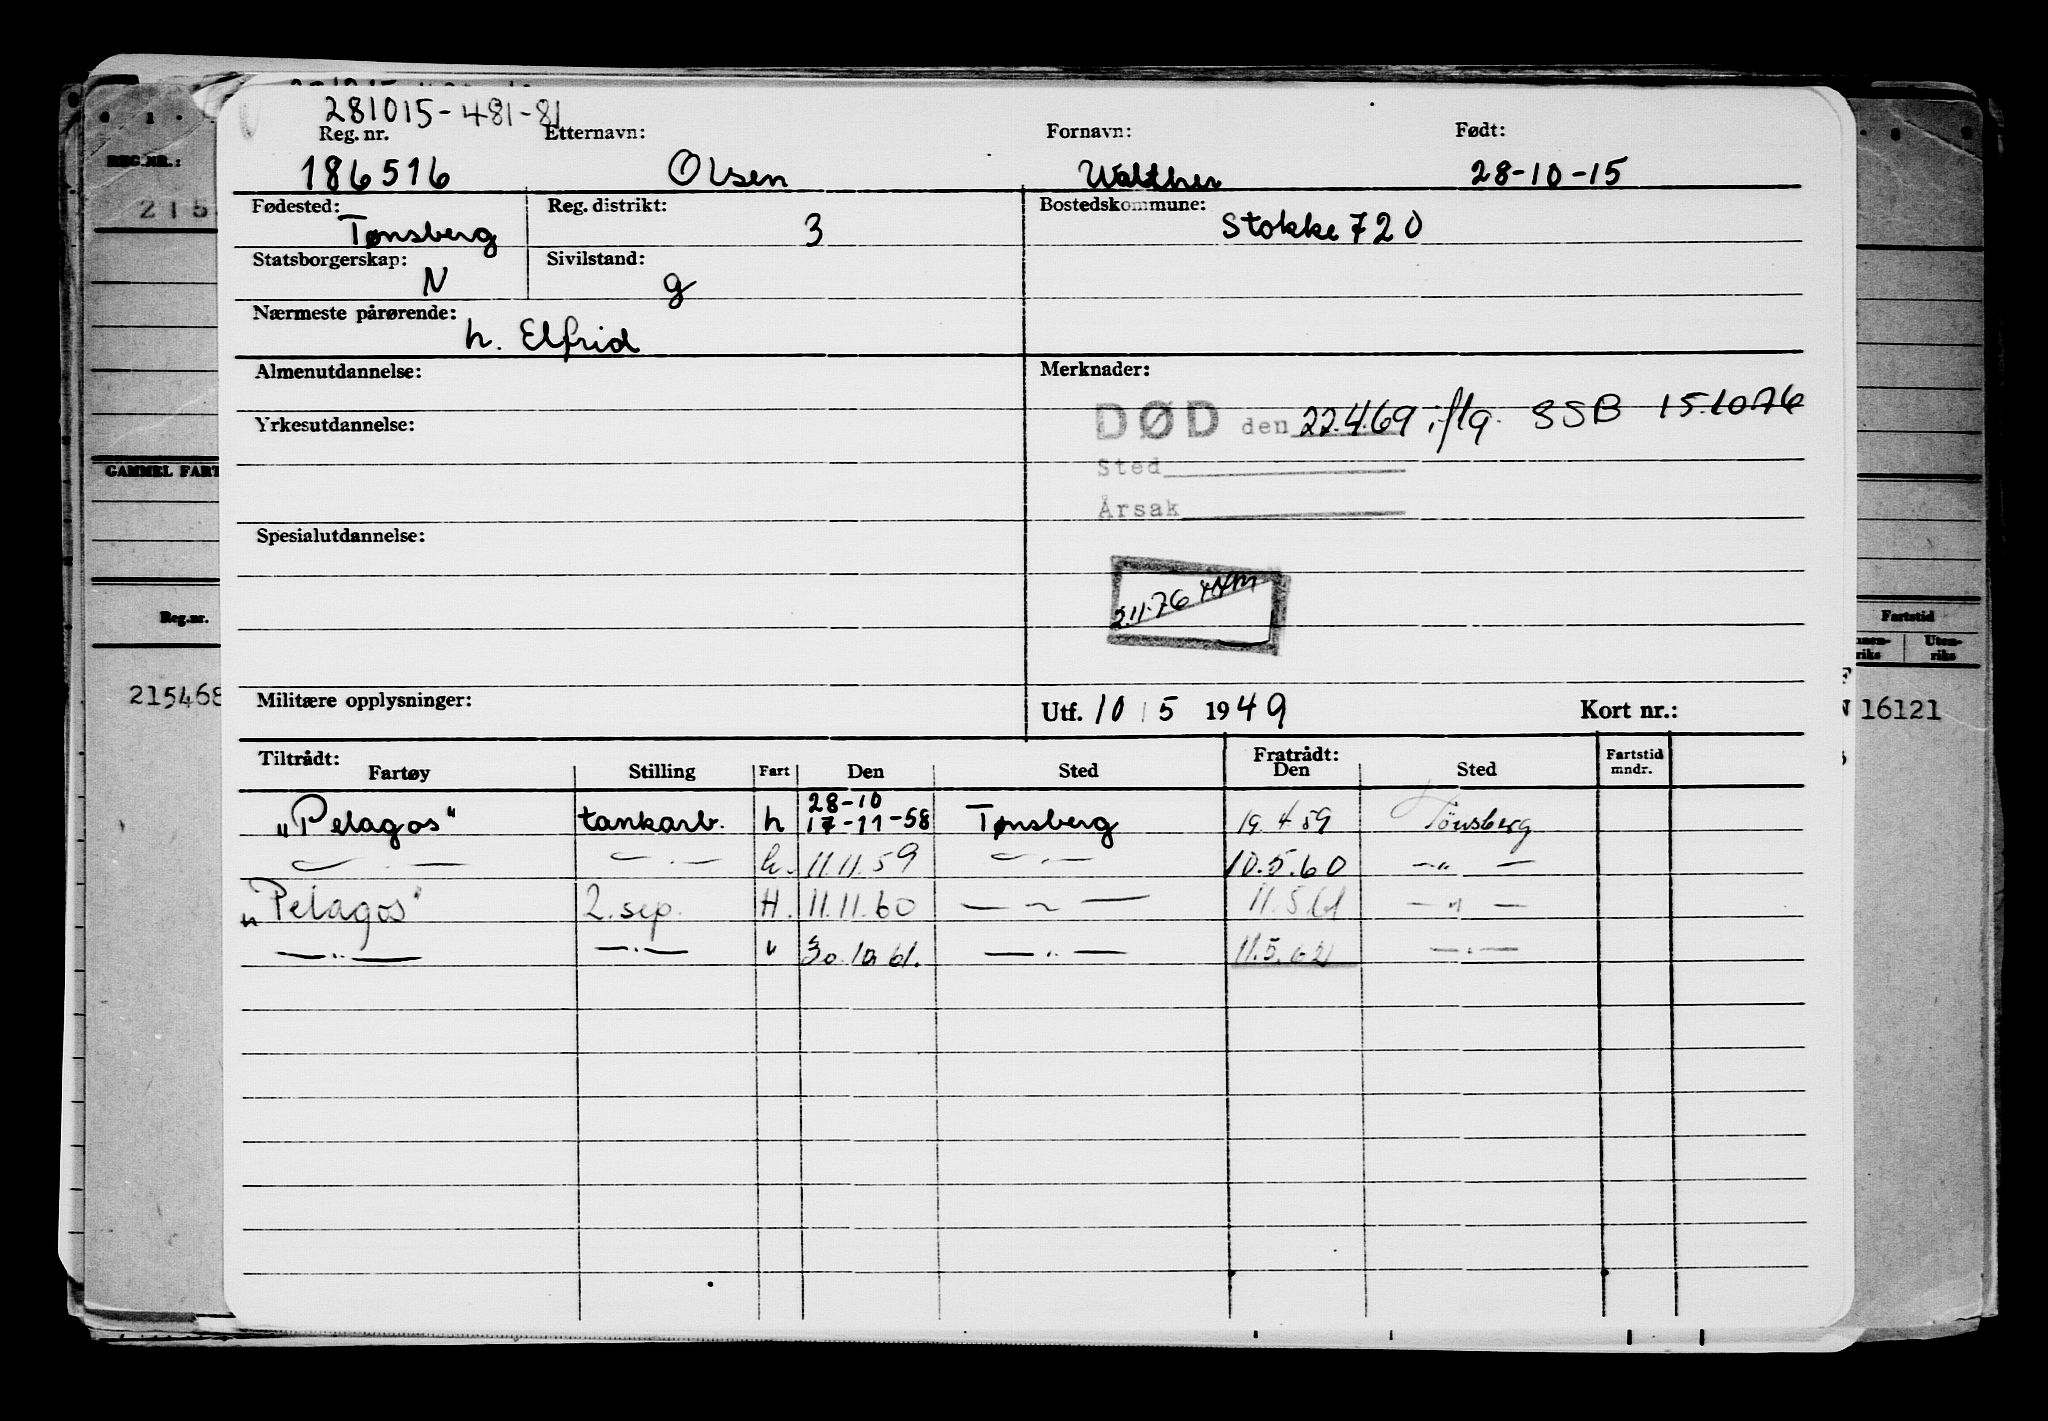 281015-481-81
Reg. nr. Etternavn: Fornavn: Født:
186516 Olsen Walther 28-10-15
Fødested: Reg. distrikt: Bostedskommune:
Tønsberg 3 Stokke 720
Statsborgerskap: Sivilstand:
N g
Nærmeste pårørende:
h. Elfrid
Almenutdannelse: Merknader:
DØD den 22.4.69 iflg. SSB 15.10.76
Yrkesutdannelse:
Sted
Årsak
Spesialutdannelse:
2.11.76
Militære opplysninger: Utf. 10 / 5 1949 Kort nr.:
Tiltrådt: Fratrådt: Fartstid
Fartøy Stilling Fart Den Sted Den Sted mndr.
28-10
"Pelagos" tankarb. h 17-11-58 Tønsberg 19.4.59 Tönsberg
— " — — " — h. 11.11.59 — " — 10.5.60 — " —
"Pelagos" 2. sep. H. 11.11.60 — " — 11.5.61 — " —
— " — — " — " 30.10.61. — " — 11.5.62 — " —
REG.NR.:
215
GAMMEL FART
Reg.nr.
215468
Fartstid
Uten-
riks riks
16121